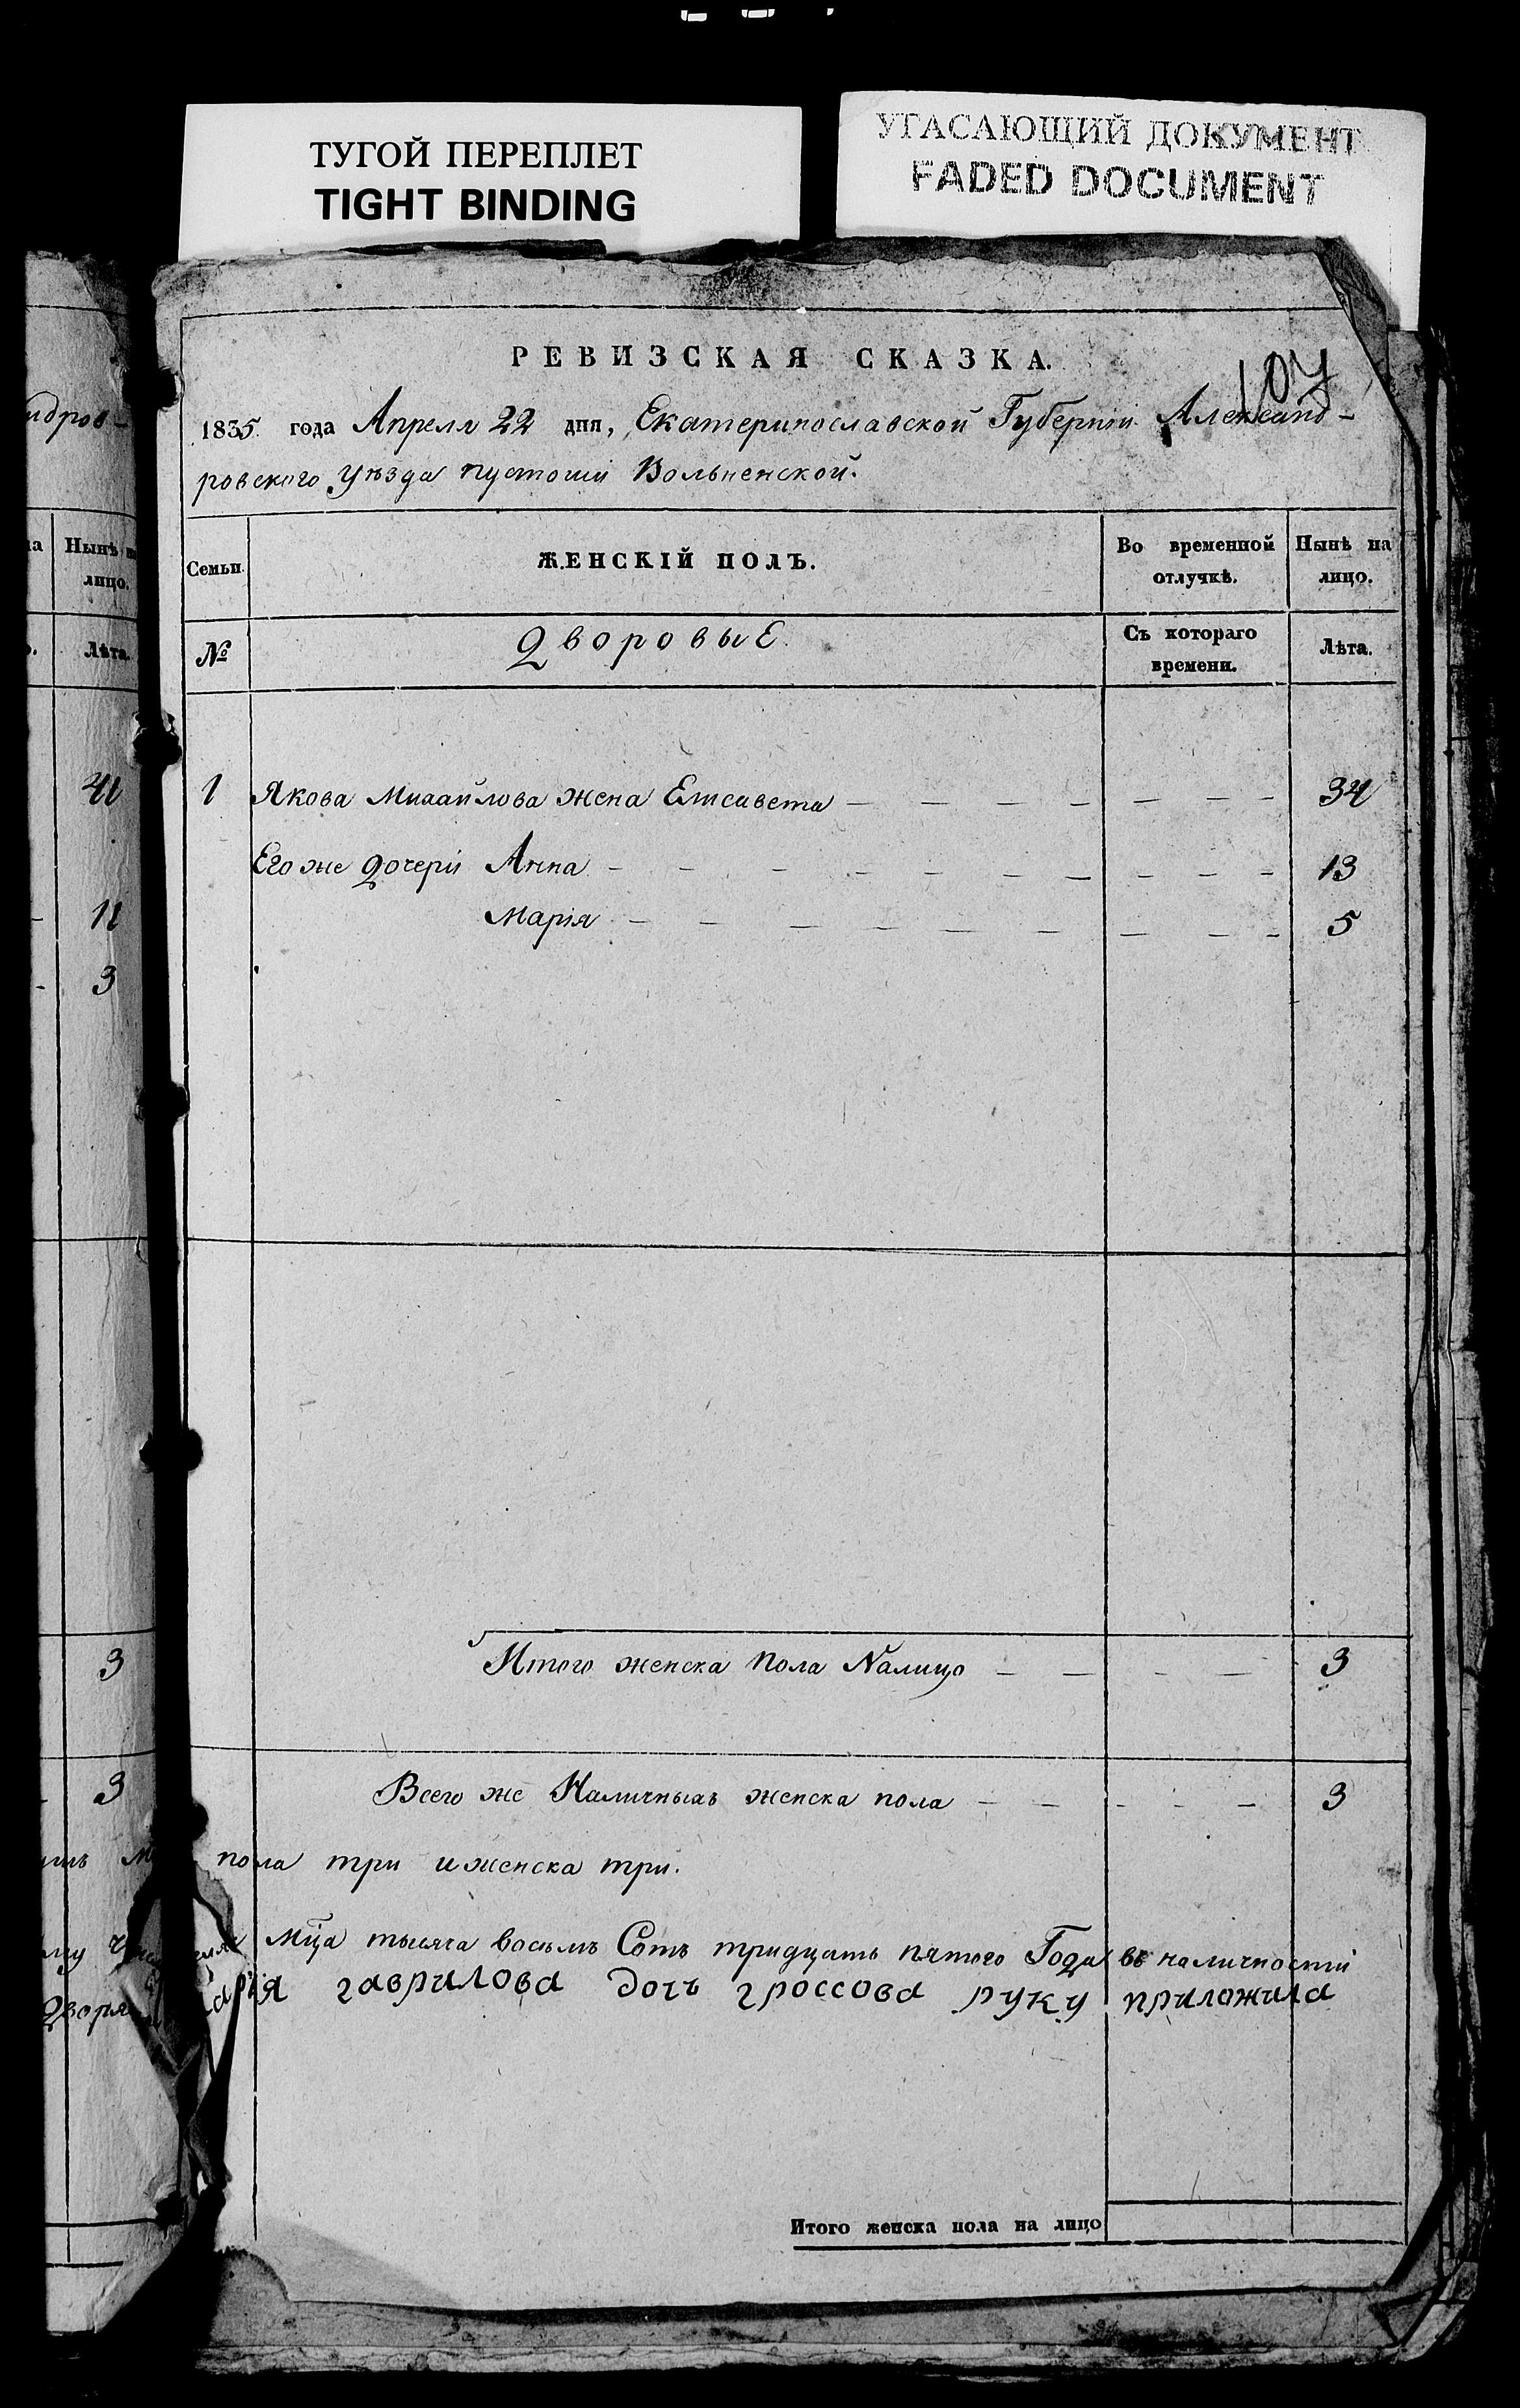 ТУГОЙ ПЕРЕПЛЕТ
TIGHT BINDING
УГАСАЮЩИЙ ДОКУМЕНТ
FADED DOCUMENT
РЕВИЗСКАЯ СКАЗКА.
107
1835 года Апреля 22 дня, Екатеринославской Губерніи Александ-
ровского уѣзда пустоши Вольненской.
Семьи. ЖЕНСКІЙ ПОЛЪ. Во временной отлучкѣ. Нынѣ на лицо.
№ Дворовые Съ котораго времени. Лѣта.
1 Якова Михайлова жена Елисавета — — — — — — — 34
Его же дочери Анна — — — — — — — — — — 13
Марія — — — — — — — — — 5
Итого женска пола Налицо — — — — 3
Всего же Наличныхъ женска пола — — — — — 3
пола три и женска три.
Мца тысяча восьмъ Сотъ тридцать пятого Года въ наличности
гаврилова дочъ гроссова руку приложила
Итого женска пола на лицо
ндров-
Нынѣ
лицо.
Лѣта.
41
11
3
3
3